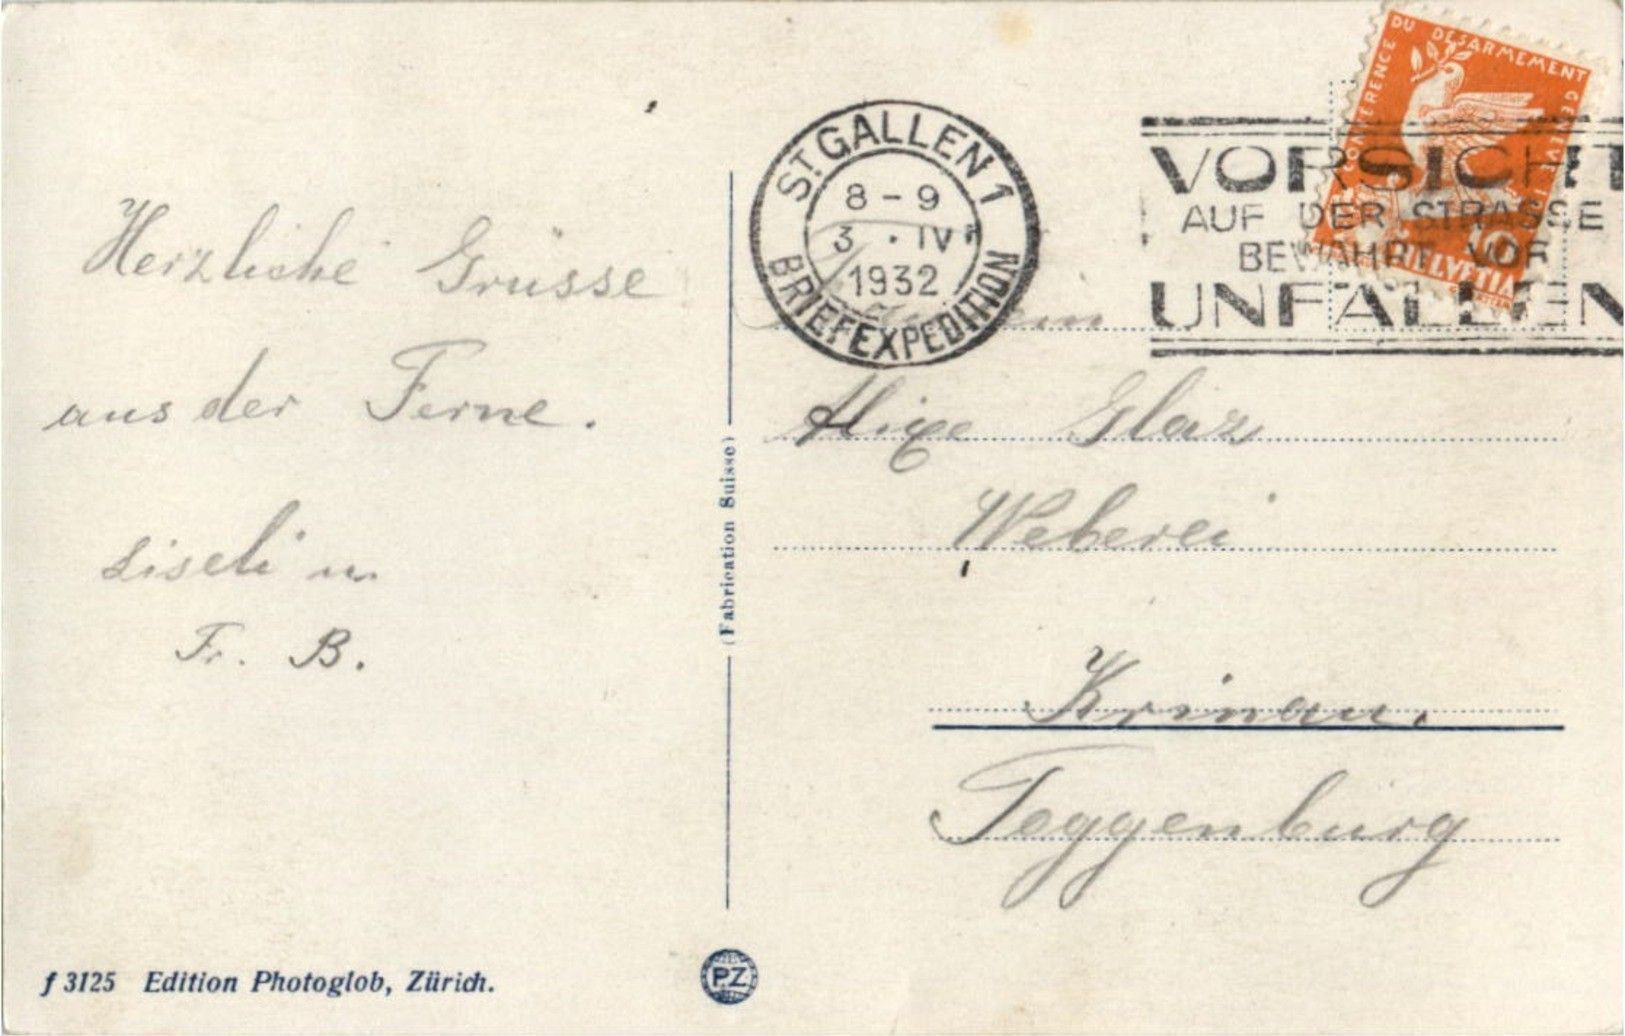 Herzliche Grüsse
aus der Ferne.
Liseli u.
Fr. B.
f 3125 Edition Photoglob, Zürich.
(Fabrication Suisse)
PZ
ST GALLEN 1
8 - 9
3 . IV
1932
BRIEFEXPEDITION
VORSICHT
AUF DER STRASSE
BEWAHRT VOR
UNFÄLLEN
CONFERENCE DU DESARMEMENT GENEVE
10
HELVETIA
Glaz
Weberei
Krinau.
Toggenburg